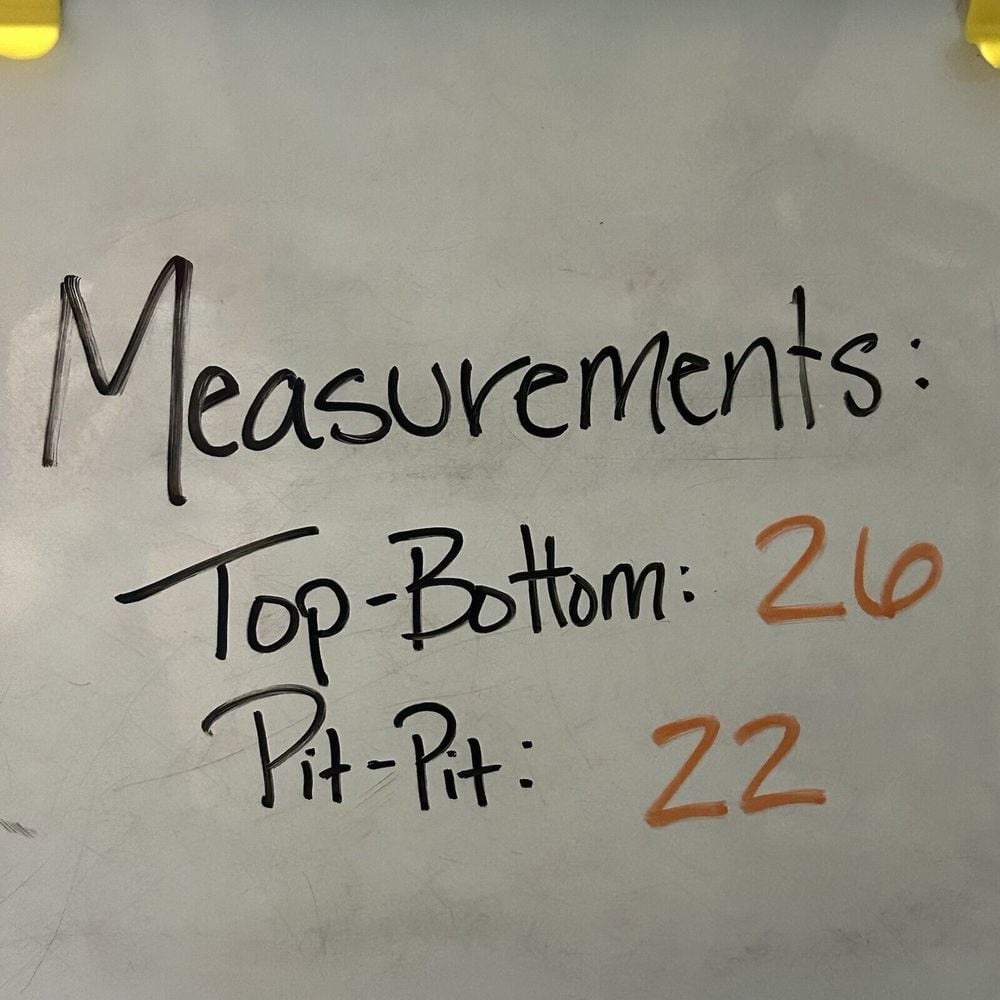 Measurements:
Top-Bottom: 26
Pit-Pit: 22